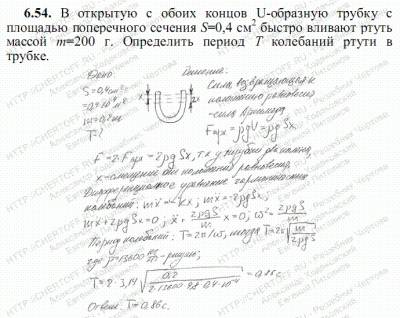 6.54. В открытую с обоих концов U-образную трубку с
площадью поперечного сечения S=0,4 см² быстро вливают ртуть
массой m=200 г. Определить период T колебаний ртути в
трубке.
Дано: Решение:
S=0,4см²= Сила, возвращающая к
положению равновесия
m=0,2кг -сила Архимеда.
T=? Fарх=ρgV=ρgSx,
F=2·Fарх=2ρgSx, т.к у трубки два колена,
x-смещение от положения равновесия,
Дифференциальное уравнение гармонических
колебаний: mẍ=-kx; mẍ=-2ρgSx;
mẍ+2ρgSx=0; ẍ+2ρgS/m x=0; ω²=2ρgS/m
Период колебаний: T=2π/ω, тогда T=2π√(m/2ρgS)
где ρ=13600 кг/м³ -ртуть;
T=2·3,14√(0,2/2·13600·9,8·0,4·10⁻⁴)=0,86с.
Ответ: T=0,86с.